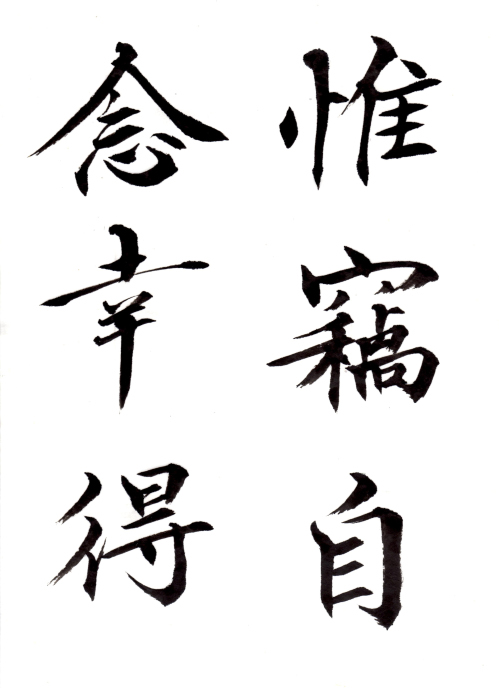 惟竊自
念幸得